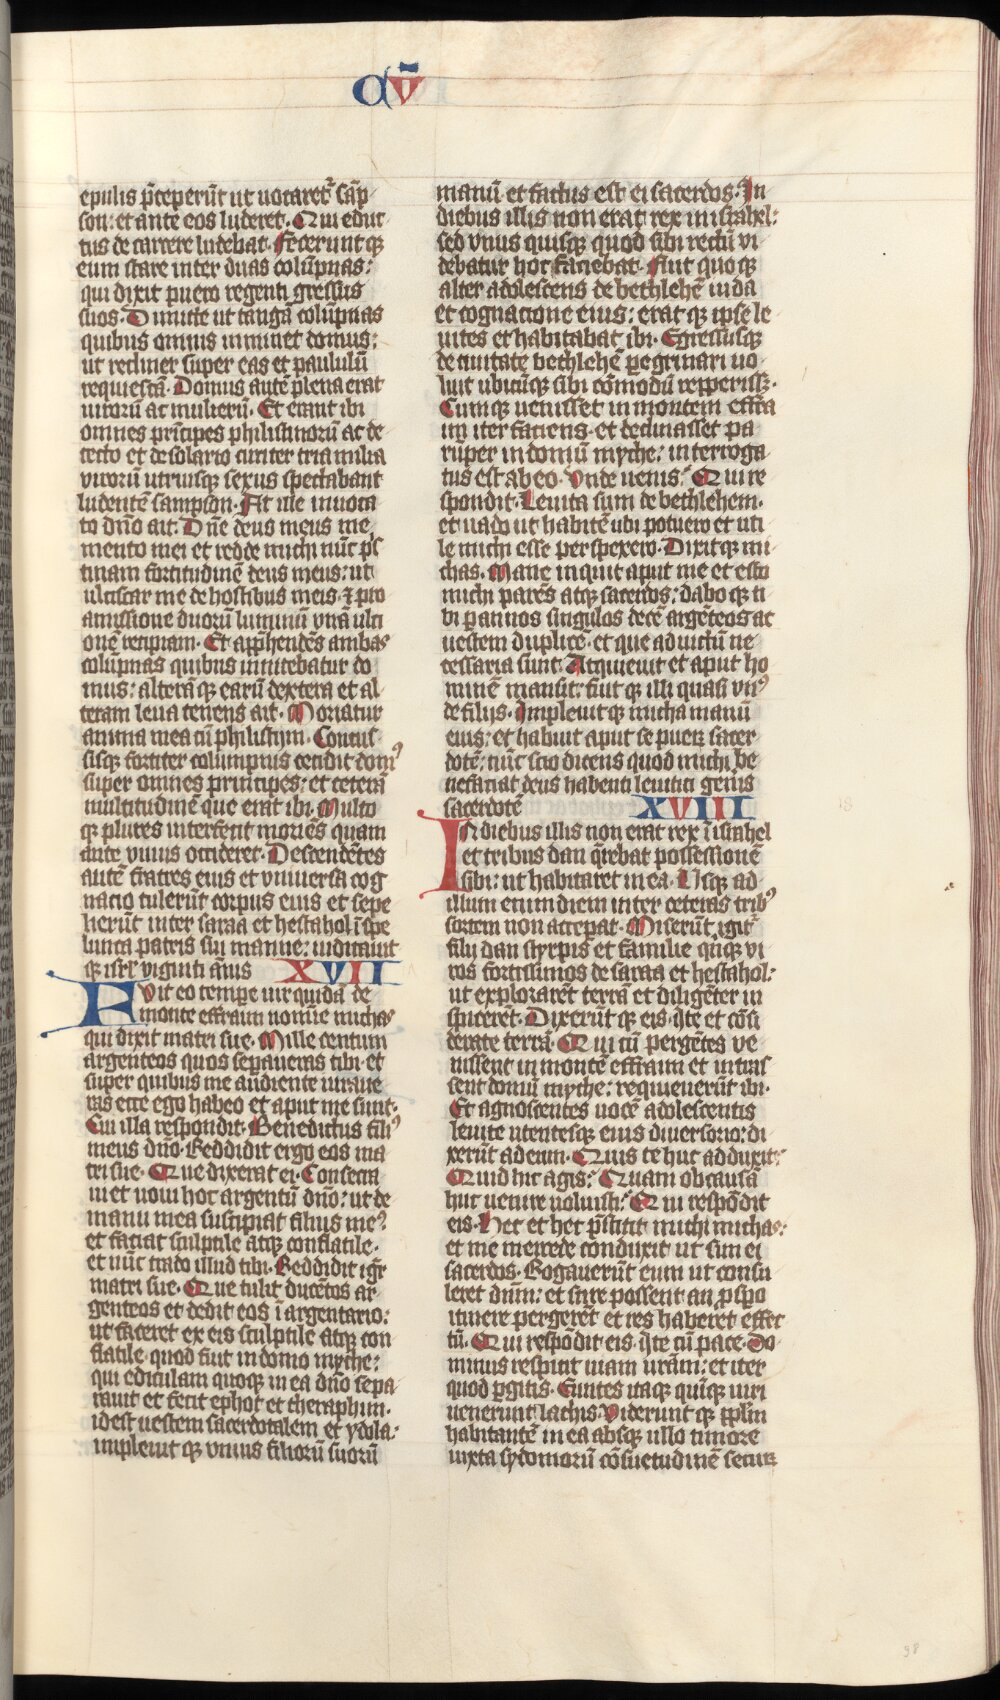 CVII
epulis p̄ceperūt ut uocaret᷑ sāp
son: et ante eos luderet. Qui educ
tus de carcere ludebat. Feceruntqꝫ
eum stare inter duas colūpnas:
qui dixit puero regenti gressus
suos. Dimitte ut tangā colūpnas
quibus omnis iminet domus:
ut recliner super eas et paululū
requiescā. Domus autē plena erat
uirorū ac mulierū. Et erant ibi
omnes prīcipes philistinorū ac de
tecto et de solario circiter tria milia
virorū utriusqꝫ sexus spectabant
ludentē sampson. At ille inuoca
to dn̄o ait. Dn̄e deus meus me
mento mei et redde michi nūc p̄s
tinam fortitudinē deus meus: ut
ulciscar me de hostibus meis. ⁊ pro
amissione duorū luminū vnā ulti
onē recipiam. Et app̄hendēs ambas
colūpnas quibus initebatur do
mus: alterāqꝫ earū dextera et al
teram leua tenens ait. Moriatur
anima mea cū philistijm. Concus
sisqꝫ fortiter columpnis cecidit domꝰ
super omnes principes: et ceterā
multitudinē que erat ibi. Multo
qꝫ plures interfecit moriēs quam
ante viuus occideret. Descendētes
autē fratres eius et vniuersa cog
nacio tulerūt corpus eius et sepe
lierūt inter saraa et hestahol ī spe
lunca patris sui manue: iudicauit
qꝫ isrl̄ viginti ānis XVII
Fvit eo tempore uir quidā de
monte effraim nomīe michas
qui dixit matri sue. Mille centum
argenteos quos sepaueras tibi et
super quibus me audiente iuraue
ras ecce ego habeo et aput me sunt.
Cui illa respondit. Benedictus filiꝰ
meus dn̄o. Reddidit ergo eos ma
tri sue. Que dixerat ei. Consecra
ui et noui hoc argentū dn̄o: ut de
manu mea suscipiat filius meꝰ
et faciat sculptile atqꝫ conflatile.
et nūc trado illud tibi. Reddidit igr̄
matri sue. Que tulit ducētos ar
genteos et dedit eos ī argentario:
ut faceret ex eis sculptile atqꝫ con
flatile quod fuit in domo myche:
qui ediculam quoqꝫ in ea dn̄o sepa
rauit et fecit ephot et theraphim.
id est uestem sacerdotalem et ydola:
impleuitqꝫ vnius filiorū suorū
manū et factus est ei sacerdos. In
diebus illis non erat rex in israhel:
sed vnus quisqꝫ quod sibi rectū vi
debatur hoc faciebat. Fuit quoqꝫ
alter adolescens de bethlehē iuda
et cognacione eius: eratqꝫ ipse le
uites et habitabat ibi. Egressusqꝫ
de ciuitate bethlehē peregrinari uo
luit ubicūqꝫ sibi cōmodū repperissꝫ.
Cumqꝫ uenisset in montem effra
im iter faciens et declinasset pa
rūper in domū myche: interroga
tus est ab eo. Vnde uenis? Qui re
spondit. Leuita sum de bethlehem.
et uado ut habitē ubi potuero et uti
le michi esse perspexero. Dixitqꝫ mi
chas. Mane inquit aput me et esto
michi parēs atqꝫ sacerdos: daboqꝫ ti
bi per annos singulos decē argēteos ac
uestem duplicē. et que ad uictū ne
cessaria sunt. Acquieuit et aput ho
minē mansit: fuitqꝫ illi quasi vnꝰ
de filijs. Impleuitqꝫ micha manū
eius: et habuit aput se puerꝫ sacer
dotē: nūc scio dicens quod michi be
nefaciat deus habenti leuitici genis
sacerdotē XVIII
In diebus illis non erat rex ī israhel
et tribus dan q̄rebat possessionē
sibi: ut habitaret in ea. Usqꝫ ad
illum enim diem inter ceteras tribꝰ
sortem non acceperat. Miserūt igit᷑
filij dan styrpis et familie q̄nqꝫ vi
ros fortissimos de saraa et hestahol:
ut explorarēt terrā et diligēter in
spicerēt. Dixerūtqꝫ eis. Ite et cōsi
derate terrā. Qui cū pergētes ve
nissent in montē effraim et intras
sent domū myche: requieuerūt ibi.
Et agnoscentes uocē adolescentis
leuite utentesqꝫ eius diuersorio: di
xerūt ad eum. Quis te huc adduxit?
Quid hic agis? Quam ob causā
huc uenire uoluisti? Qui respōdit
eis. Hec et hec p̄stitit michi michas:
et me mercede conduxit ut sim ei
sacerdos. Rogauerūt eum ut consu
leret dnm̄: et scire possent an pspo
itinere pergerēt et res haberet effec
tū. Qui respōdit eis. Ite cū pace. Do
minus respicit uiam uram̄: et iter
quod pergitis. Euntes itaqꝫ quīqꝫ uiri
uenerunt lachis. Videruntqꝫ ppl̄m
habitantē in ea absqꝫ ullo timore
iuxta sydoniorū cōsuetudinē securꝫ
18
98